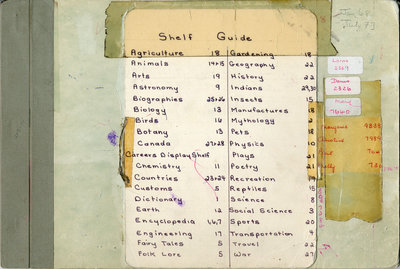 Shelf Guide
Agriculture 18
Animals 14+15
Arts 19
Astronomy 9
Biographies 25+26
Biology 13
Birds 16
Botany 13
Canada 27+28
Careers Display Shelf
Chemistry 11
Countries 23+24
Customs 5
Dictionary 1
Earth 12
Encyclopedia 1,6,7
Engineering 17
Fairy Tales 5
Folk Lore 5
Gardening 18
Geography 22
History 22
Indians 29,30
Insects 15
Manufactures 18
Mythology 2
Pets 18
Physics 10
Plays 21
Poetry 21
Recreation
Reptiles 15
Science 8
Social Science 3
Sports 20
Transportation 4
Travel 22
War 27